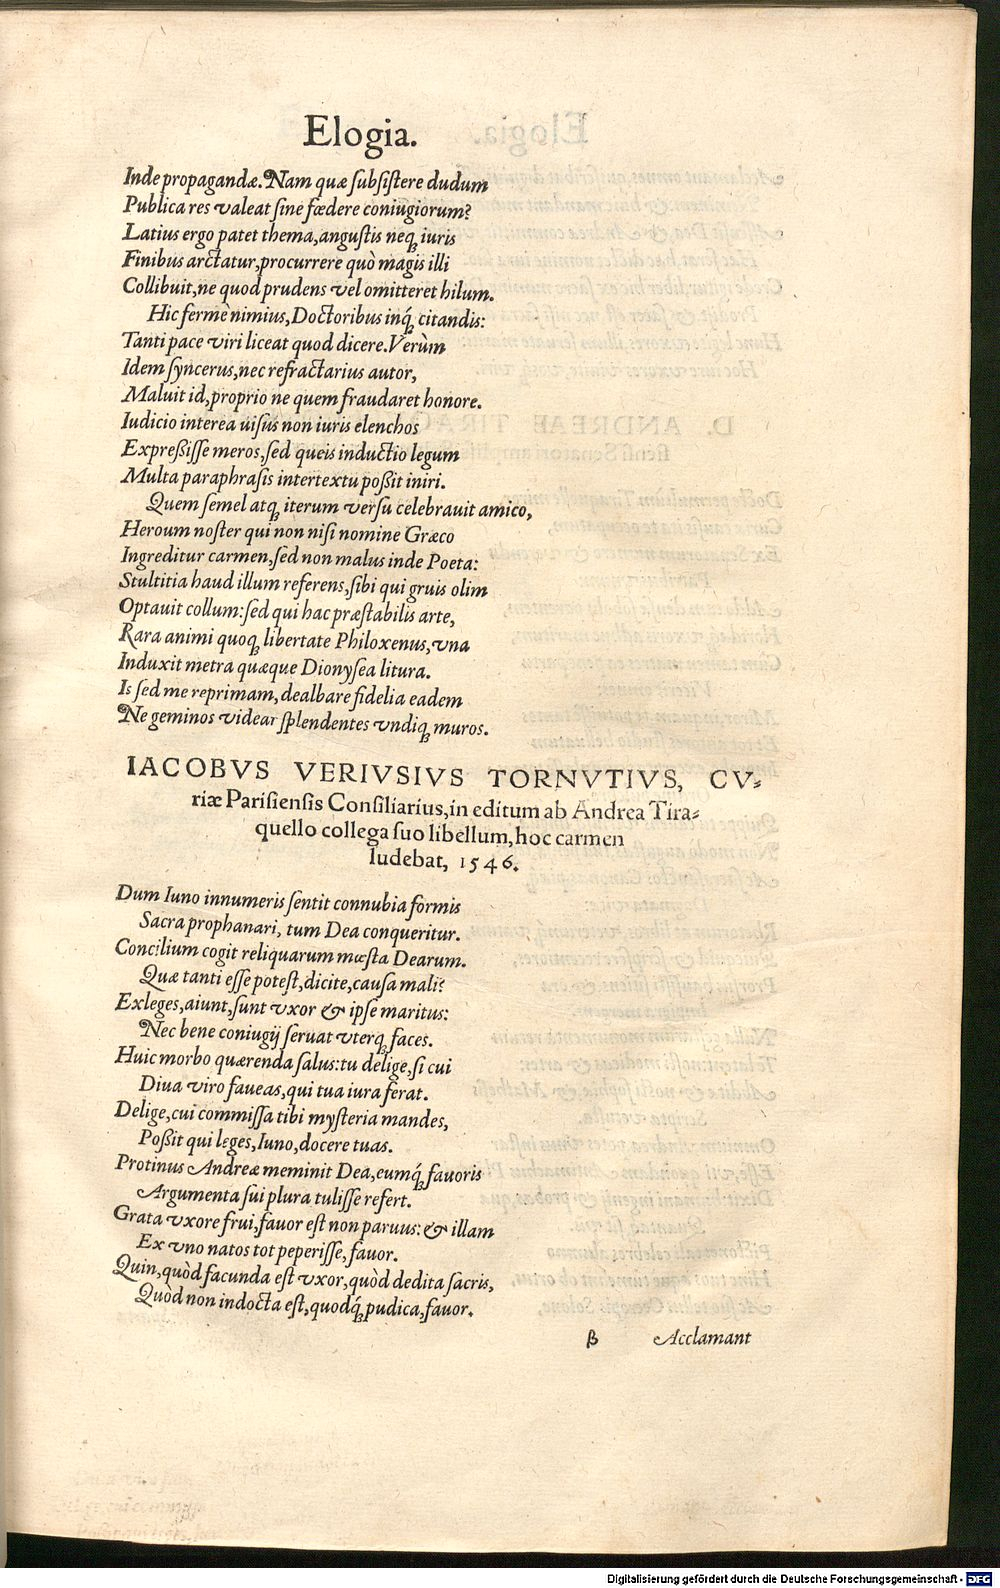 Elogia.
Inde propagandæ. Nam quæ subsistere dudum
Publica res valeat sine fœdere coniugiorum?
Latius ergo patet thema, angustis neq; iuris
Finibus arctatur, procurrere quò magis illi
Collibuit, ne quod prudens vel omitteret hilum.
Hic fermè nimius, Doctoribus inq́; citandis:
Tanti pace viri liceat quod dicere. Verùm
Idem syncerus, nec refractarius autor,
Maluit id, proprio ne quem fraudaret honore.
Iudicio interea uisus non iuris elenchos
Expreßisse meros, sed queis inductio legum
Multa paraphrasis intertextu poßit iniri.
Quem semel atq; iterum versu celebrauit amico,
Heroum noster qui non nisi nomine Græco
Ingreditur carmen, sed non malus inde Poeta:
Stultitia haud illum referens, sibi qui gruis olim
Optauit collum: sed qui hac præstabilis arte,
Rara animi quoq; libertate Philoxenus, vna
Induxit metra quæque Dionysea litura.
Is sed me reprimam, dealbare fidelia eadem
Ne geminos videar splendentes vndiq; muros.
IACOBVS VERIVSIVS TORNVTIVS, CV-
riæ Parisiensis Consiliarius, in editum ab Andrea Tira-
quello collega suo libellum, hoc carmen
ludebat, 1546.
Dum Iuno innumeris sentit connubia formis
Sacra prophanari, tum Dea conqueritur.
Concilium cogit reliquarum mœsta Dearum.
Quæ tanti esse potest, dicite, causa mali?
Exleges, aiunt, sunt vxor & ipse maritus:
Nec bene coniugij seruat vterq; faces.
Huic morbo quærenda salus: tu delige, si cui
Diua viro faueas, qui tua iura ferat.
Delige, cui commissa tibi mysteria mandes,
Poßit qui leges, Iuno, docere tuas.
Protinus Andreæ meminit Dea, eumq́; fauoris
Argumenta sui plura tulisse refert.
Grata vxore frui, fauor est non paruus: & illam
Ex vno natos tot peperisse, fauor.
Quin, quòd facunda est vxor, quòd dedita sacris,
Quòd non indocta est, quodq́; pudica, fauor.
β Acclamant
Digitalisierung gefördert durch die Deutsche Forschungsgemeinschaft - DFG